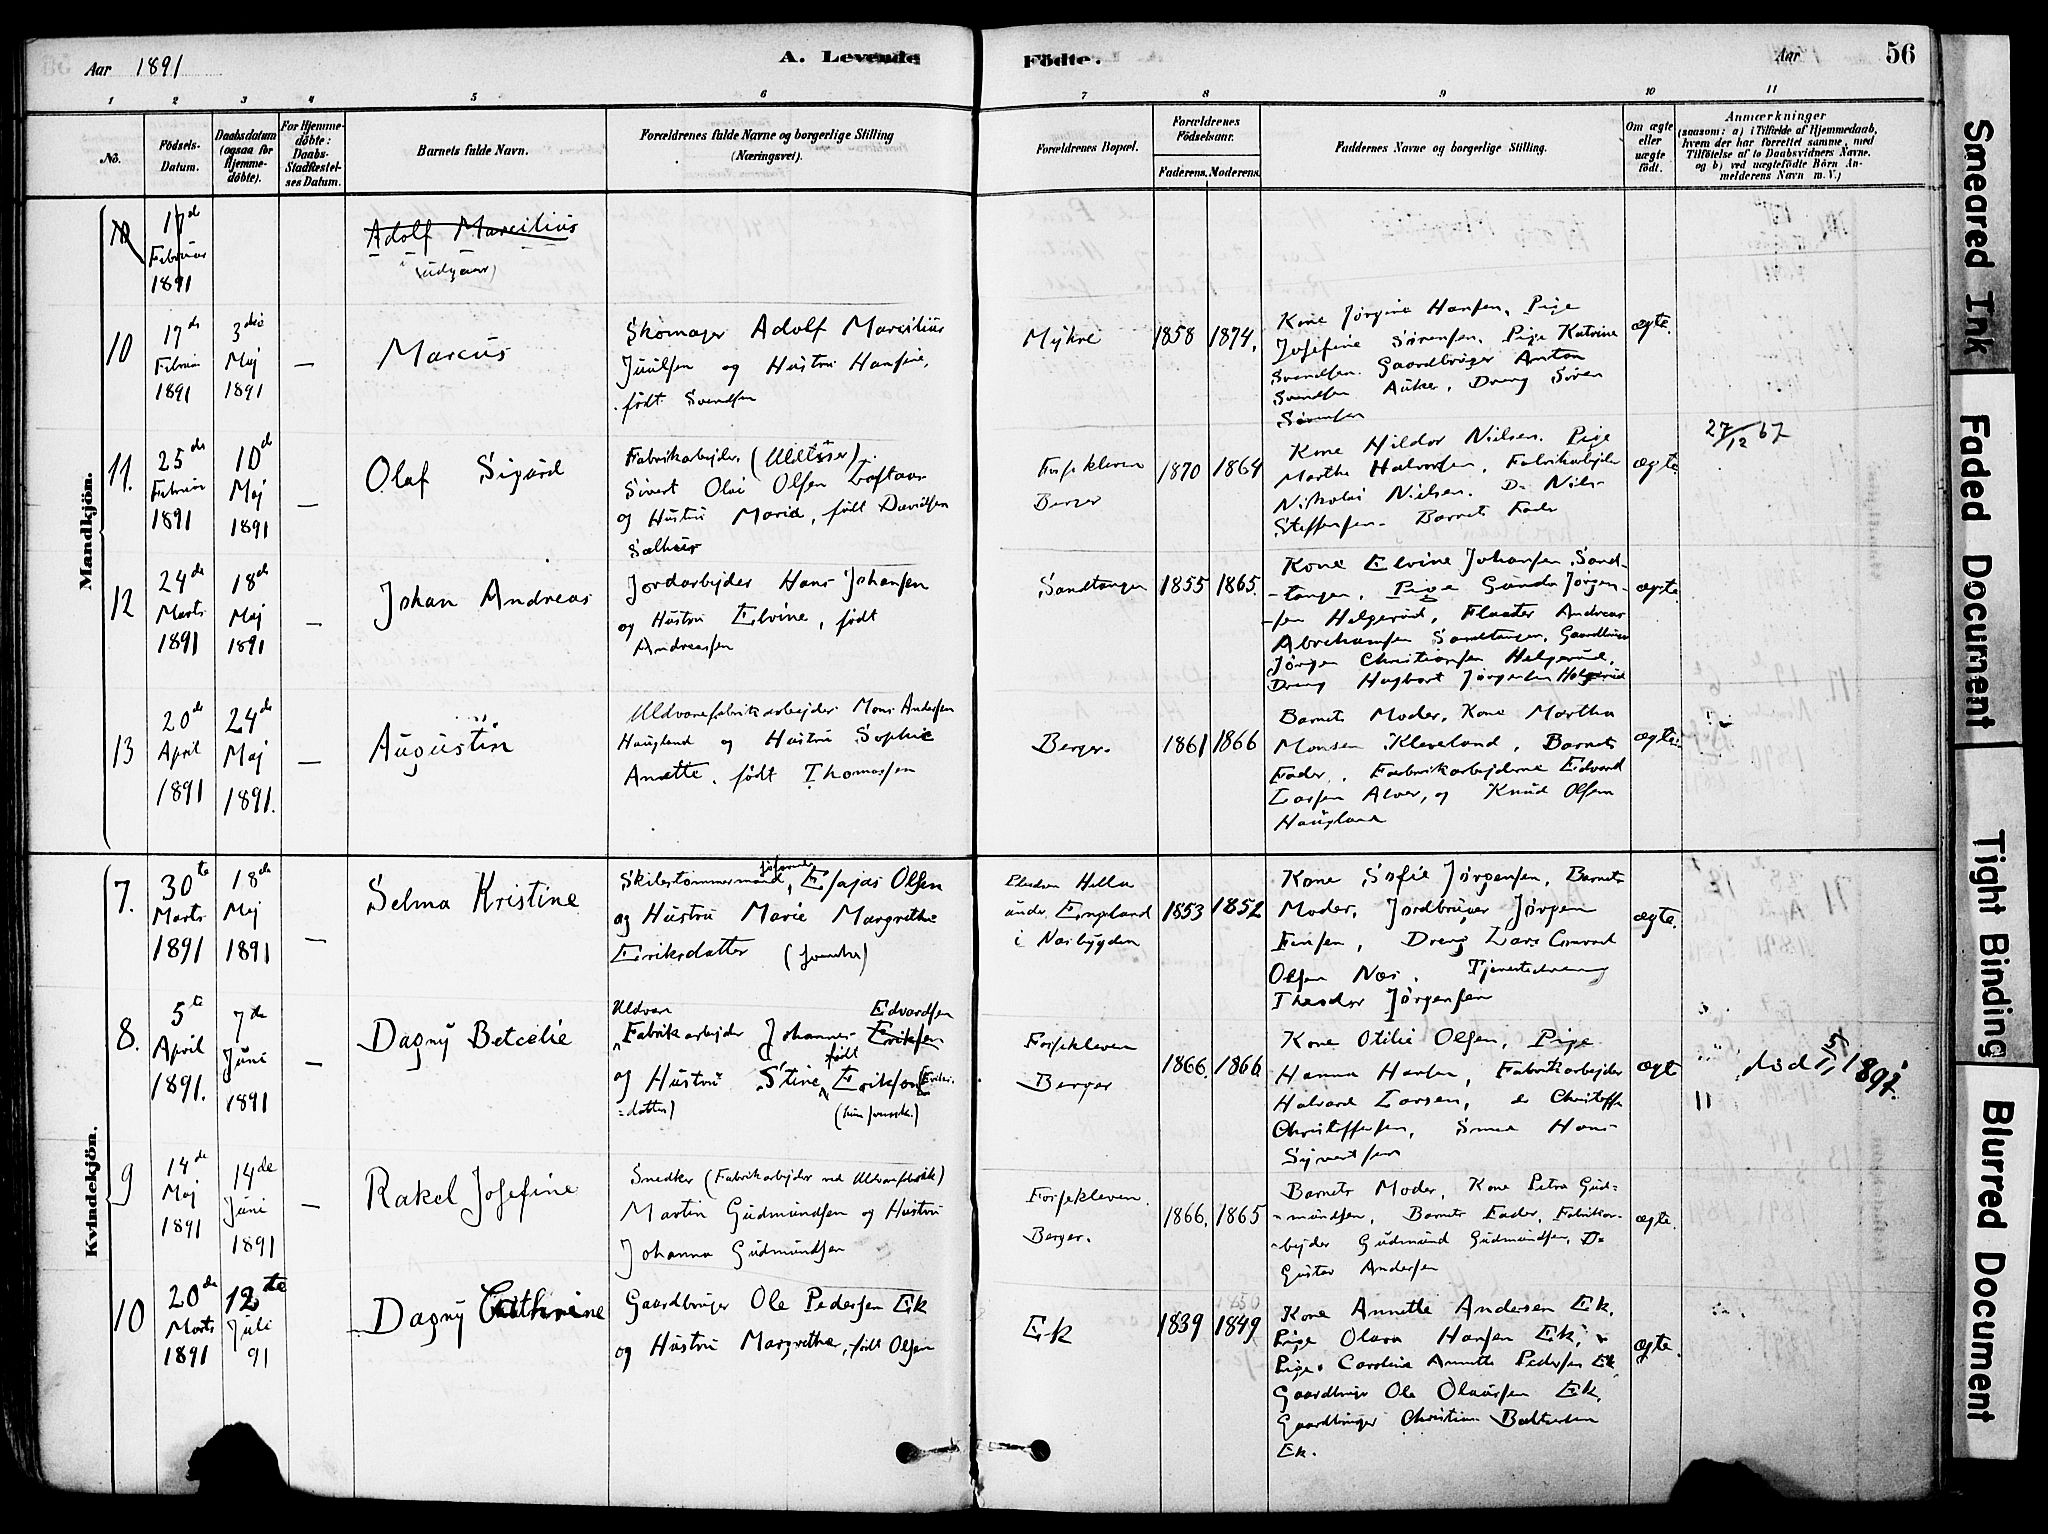 Aar 1891
A. Levende
Födte.
Aar
56
1 2 3 4 5 6 7 8 9 10 11
No.
Födsels-
Datum.
Daabsdatum
(ogsaa for
Hjemme-
döbte).
For Hjemme-
döbte:
Daabs-
Stadfæstel-
ses Datum.
Barnets fulde Navn.
Forældrenes fulde Navne og borgerlige Stilling
(Næringsvei).
Forældrenes Bopæl.
Forældrenes
Födselsaar.
Faderens. Moderens.
Faddernes Navne og borgerlige Stilling.
Om ægte
eller
uægte
født.
Anmærkninger
(saasom: a) i Tilfælde af Hjemmedaab,
hvem der har forrettet samme, med
Tilföielse af to Daabsvidners Navne,
og b) ved uægtefödte Börn An-
melderens Navn m. V.)
Mandkjön.
10
17de
Februar
1891
Adolf Marcilius
(udgaar)
10
17de
Februar
1891
3die
Maj
1891
—
Marcus
Skomager Adolf Marcilius
Juulsen og Hustru Hansine,
født Svendsen
Mykre
1858 1874.
Kone Jørgine Hansen, Pige
Josefine Sørensen, Pige Katrine
Svendsen. Gaardbruger Anton
Svendsen Auker, Dreng Søren
Sørensen
ægte.
11.
25de
Februar
1891
10de
Maj
1891
—
Olaf Sigurd
Fabrikarbejder
Sivert Olai Olsen
og Hustru Maria, født Davidsen
Sælhus
Forsekleven
Berger
1870 1864
Kone Hildor Nielsen. Pige
Marthe Halvorsen, Fabrikarbejder
Nikolai Nielsen. Do Nils
Steffensen. Barnets Fader
ægte
27/12 67
12
24de
Marts
1891
18de
Maj
1891
—
Johan Andreas
Jordarbejder Hans Johansen
og Hustru Elvine, født
Andreassen
Sandtangen
1855 1865.
Kone Elvine Johansen Sand-
-tangen, Pige Gunda Jørgen-
-sen Helgerud, Flaader Andreas
Abrahamsen Sandtangen, Gaardbruger
Jørgen Christiansen Helgerud,
Dreng Hagbart Jørgensen Helgerud
ægte
13
20de
April
1891
24de
Maj
1891.
—
Augustin
Uldvarefabrikarbejder Mons Andersen
Haugland og Hustru Sophie
Anette, født Thomassen
Berger.
1861 1866
Barnets Moder, Kone Martha
Monsen Kleveland, Barnets
Fader, Fabrikarbejderne Edvard
Larsen Alver, og Knud Olsen
Haugland
ægte
Kvindekjön.
7.
30te
Marts
1891
18de
Maj
1891
—
Selma Kristine
Skibstømmermand, Esajas Olsen
og Hustru Marie Margrethe
Eriksdatter (svenske)
Hella
under Engeland
i Nesbygden
1853 1852
Kone Sofie Jørgensen, Barnets
Moder, Jordbruger Jørgen
Hansen, Dreng Lars Conrad
Olsen Næs. Tjenestedreng
Theodor Jørgensen
ægte.
8.
5te
April
1891.
7de
Juni
1891
—
Dagny Betcelie
Uldvare Edvardsen
Fabrikarbejder Johannes Eriksen
og Hustru Stine født Erikson (Eriks-
=datter) (hun svensk.)
Forsekleven
Berger
1866. 1866
Kone Otilie Olsen, Pige
Hanna Hansen, Fabrikarbejder
Halvard Larsen, do Christoffer
Christoffersen, Smed Hans
Syvertsen
ægte
død 5/11 1897.
9
14de
Maj
1891
14de
Juni
1891
—
Rakel Josefine
Snedker (Fabrikarbejder ved Uldvarefabrik)
Martin Gudmundsen og Hustru
Johanna Gudmundsen
Forsekleven.
Berger.
1866. 1865
Barnets Moder, Kone Petra Gud=
=mundsen, Barnets Fader, Fabrikar-
-bejder Gudmund Gudmundsen, Do
Gustav Andersen
ægte.
10
20de
Marts
1891
12te
Juli
91
—
Dagny Cathrine
Gaardbruger Ole Pedersen Ek
og Hustru Margrethe, født Olsen
Ek
1839 1849
1850
Kone Annette Andersen Ek,
Pige Olava Hansen Ek,
Pige Caroline Annette Pedersen Ek,
Gaardbruger Ole Olaussen Ek,
Gaardbruger Christian Baltsersen
Ek.
ægte.
Smeared Ink
Faded Document
Tight Binding
Blurred Document